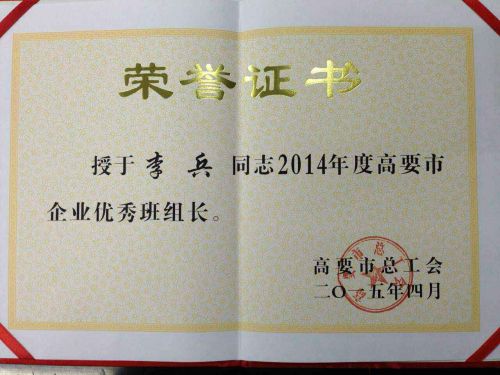 荣誉证书
授于李兵同志2014年度高要市
企业优秀班组长。
高要市总工会
二〇一五年四月
高要市总工会